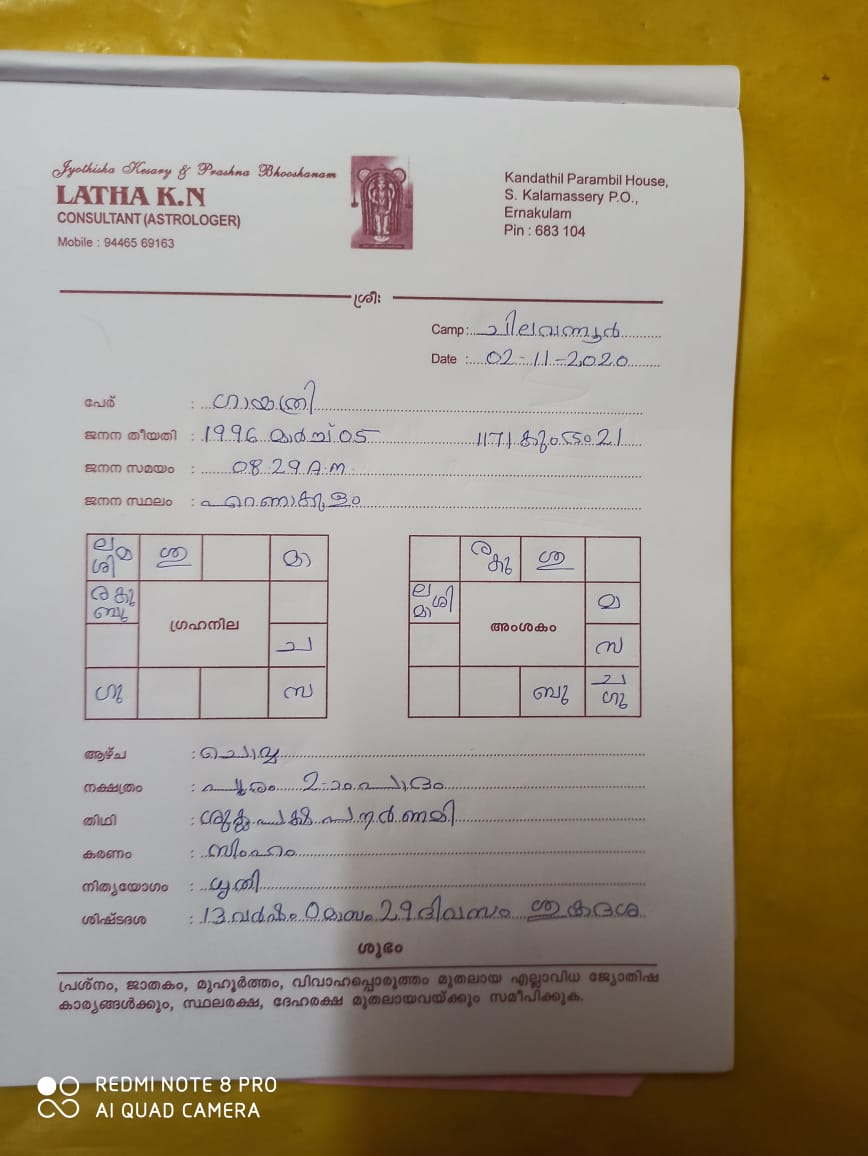 Jyothisha Kesary & Prashna Bhooshanam
LATHA K.N
CONSULTANT (ASTROLOGER)
Mobile : 94465 69163
Kandathil Parambil House,
S. Kalamassery P.O.,
Ernakulam
Pin : 683 104
ശ്രീഃ
Camp: ചിലവന്നൂർ
Date : 02-11-2020
പേര് : ഗായത്രി
ജനന തീയതി : 1996 മാർച്ച് 05 1171 കുംഭം 21
ജനന സമയം : 08.29 A.M
ജനന സ്ഥലം : എറണാകുളം
ല മ ശി
ശു
മാ
ര കു ബു
ഗ്രഹനില
ച
ഗു
സ
ര കു
ശു
ല മാ ശി
അംശകം
മ
സ
ബു
ച ഗു
ആഴ്ച : ചൊവ്വ
നക്ഷത്രം : പൂരം 2-ാം പാദം
തിഥി : ശുക്ലപക്ഷ പൗർണമി
കരണം : സിംഹം
നിത്യയോഗം : ധൃതി
ശിഷ്ടദശ : 13 വർഷം 0 മാസം 29 ദിവസം ശുക്രദശ
ശുഭം
പ്രശ്നം, ജാതകം, മുഹൂർത്തം, വിവാഹപ്പൊരുത്തം മുതലായ എല്ലാവിധ ജ്യോതിഷ
കാര്യങ്ങൾക്കും, സ്ഥലരക്ഷ, ദേഹരക്ഷ മുതലായവയ്ക്കും സമീപിക്കുക.
REDMI NOTE 8 PRO
AI QUAD CAMERA